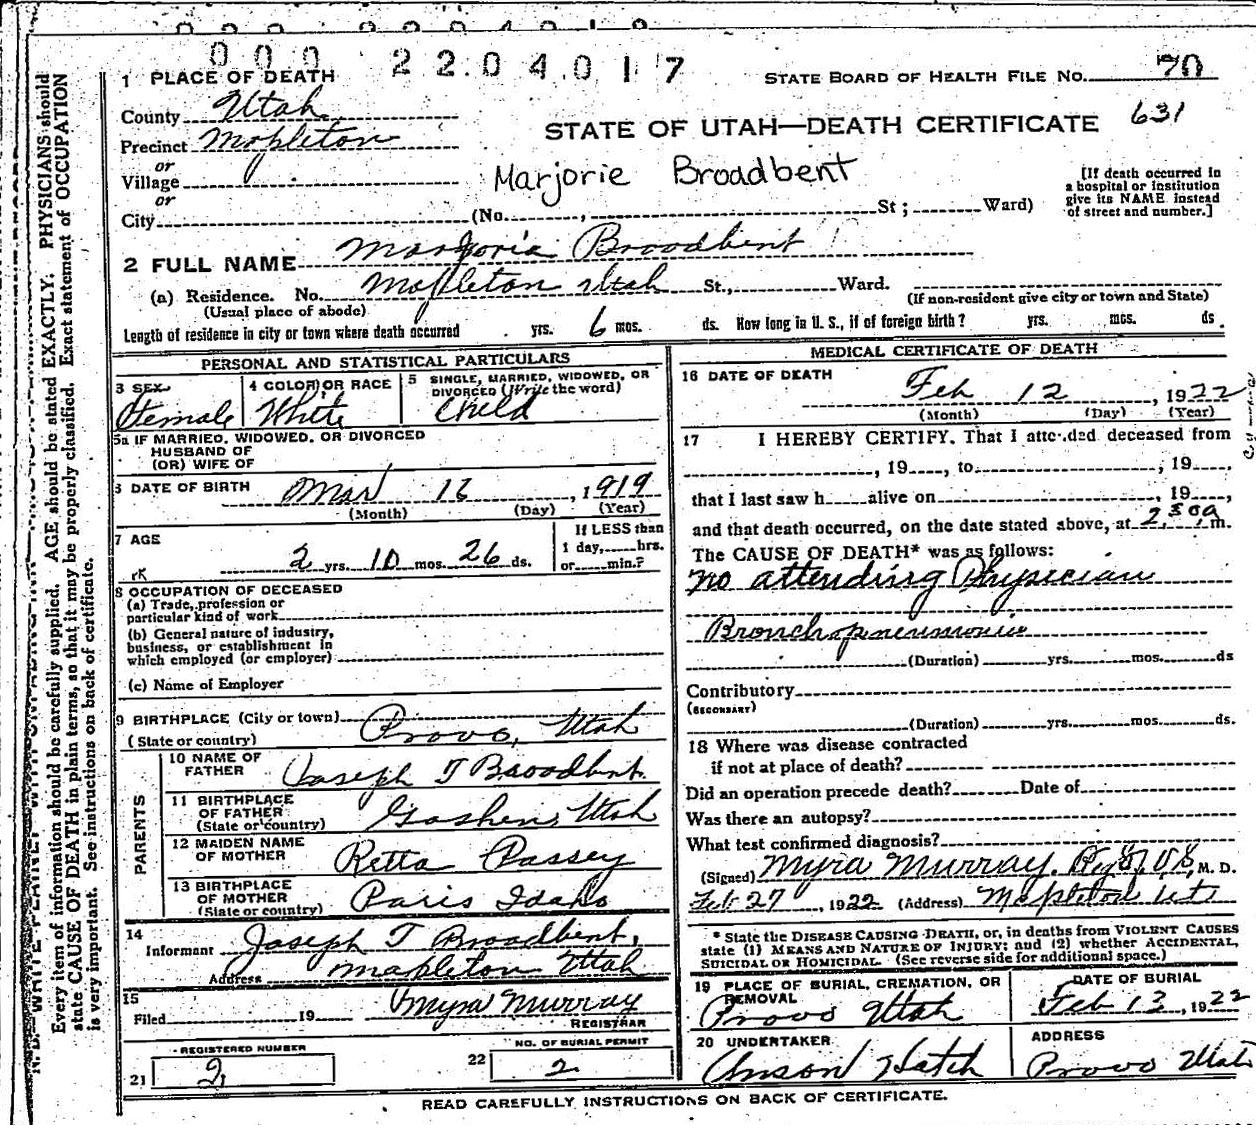 000 2204017
1 PLACE OF DEATH
STATE BOARD OF HEALTH FILE NO. 70
County Utah
STATE OF UTAH—DEATH CERTIFICATE 631
Precinct Mapleton
or
Village
Marjorie Broadbent
or
City (No. , St ; Ward)
[If death occurred in
a hospital or institution
give its NAME instead
of street and number.]
2 FULL NAME Marjorie Broadbent
(a) Residence. No. Mapleton Utah St., Ward.
(Usual place of abode)
(If non-resident give city or town and State)
Length of residence in city or town where death occurred yrs. 6 mos. ds. How long in U. S., if of foreign birth ? yrs. mos. ds.
PERSONAL AND STATISTICAL PARTICULARS
3 SEX
Female
4 COLOR OR RACE
White
5 SINGLE, MARRIED, WIDOWED, OR
DIVORCED (Write the word)
Child
5a IF MARRIED, WIDOWED, OR DIVORCED
HUSBAND OF
(OR) WIFE OF
DATE OF BIRTH Mar 16, 1919
(Month) (Day) (Year)
7 AGE
2 yrs. 10 mos. 26 ds.
If LESS than
1 day, hrs.
or min.?
8 OCCUPATION OF DECEASED
(a) Trade, profession or
particular kind of work
(b) General nature of industry,
business, or establishment in
which employed (or employer)
(c) Name of Employer
9 BIRTHPLACE (City or town) Provo, Utah
(State or country)
PARENTS
10 NAME OF
FATHER Joseph T Broadbent
11 BIRTHPLACE
OF FATHER Goshen, Utah
(State or country)
12 MAIDEN NAME
OF MOTHER Retta Passey
13 BIRTHPLACE
OF MOTHER Paris Idaho
(State or country)
14
Informant Joseph T Broadbent,
Address Mapleton Utah
15
Filed 19 Myra Murray
REGISTRAR
REGISTERED NUMBER
21 2
NO. OF BURIAL PERMIT
22 2
MEDICAL CERTIFICATE OF DEATH
16 DATE OF DEATH
Feb 12, 1922
(Month) (Day) (Year)
17 I HEREBY CERTIFY, That I attended deceased from
, 19 , to , 19 ,
that I last saw h alive on , 19 ,
and that death occurred, on the date stated above, at 2,30a m.
The CAUSE OF DEATH* was as follows:
no attending Physician
Bronchopneumonia
(Duration) yrs. mos. ds
Contributory
(SECONDARY)
(Duration) yrs. mos. ds.
18 Where was disease contracted
if not at place of death?
Did an operation precede death? Date of
Was there an autopsy?
What test confirmed diagnosis?
(Signed) Myra Murray. M. D.
Feb 27, 1922 (Address) Mapleton Ut
* State the DISEASE CAUSING DEATH, or, in deaths from VIOLENT CAUSES
state (1) MEANS AND NATURE OF INJURY; and (2) whether ACCIDENTAL,
SUICIDAL OR HOMICIDAL. (See reverse side for additional space.)
19 PLACE OF BURIAL, CREMATION, OR
REMOVAL
Provo Utah
DATE OF BURIAL
Feb 13, 1922
20 UNDERTAKER
Anson Hatch
ADDRESS
Provo Utah
READ CAREFULLY INSTRUCTIONS ON BACK OF CERTIFICATE.
Every item of information should be carefully supplied. AGE should be stated EXACTLY. PHYSICIANS should
state CAUSE OF DEATH in plain terms, so that it may be properly classified. Exact statement of OCCUPATION
is very important. See instructions on back of certificate.